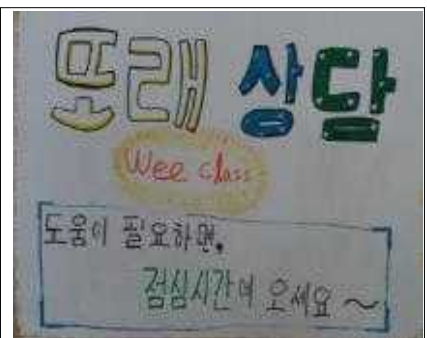 또래 상담
Wee class
도움이 필요하면,
점심시간에 오세요~